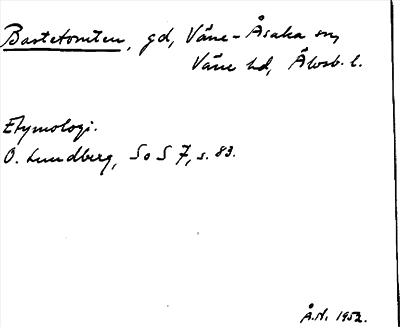 Bastetomten, gd, Väne-Åsaka sn,
Väne hd, Älvsb. l.
Etymologi.
O. Lundberg, SoS 7, s. 83.
Å.N. 1952.